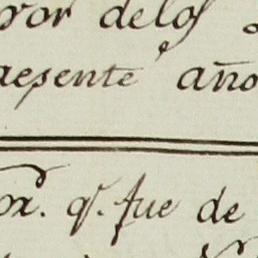 yor delos
aesente año
or. q.e fue de